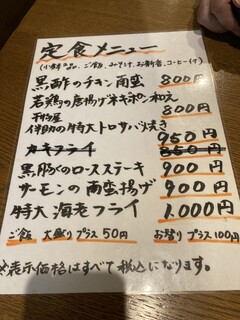 定食メニュー
(小鉢2品、ご飯、みそ汁、お新香、コーヒー付)
黒酢のチキン南蛮 800円
若鶏の唐揚げネギポン和え 800円
伴助の特大トロサバ焼き 950円
カキフライ 850円
黒豚のロースステーキ 900円
サーモンの南蛮揚げ 900円
特大海老フライ 1,000円
ご飯 大盛りプラス50円 お替りプラス100円
※表示価格はすべて税込になります。